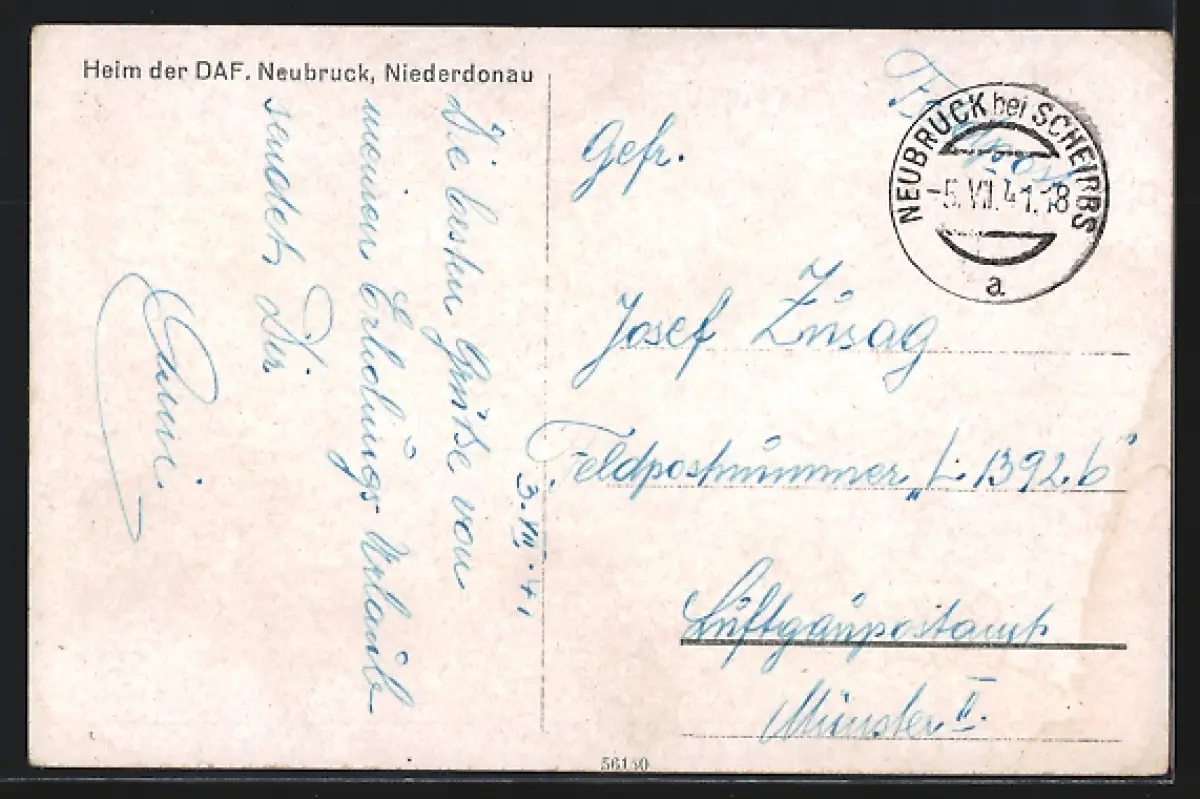 Heim der DAF. Neubruck, Niederdonau
3. VII. 41
Die besten Grüße von
meinen Erholungs Urlaub
sendet Dir
Feldpost
NEUBRUCK bei SCHEIBBS
-5. VII. 41.18
a
Gefr.
Josef Züsag
Feldpostnummer „L 1392.b“
Luftgaupostamt
Münster II.
56130